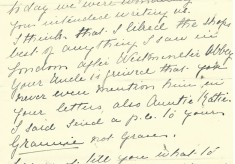 today we were wondering
you intended writing it.
I think that I liked the shops
best of anything I saw in
London after Westminster Abbey
Your Uncle is grieved that you
never even mention him in
your letters also Auntie Katie.
I said send a p.c. to your
Grannie not Gran.
tell you what to